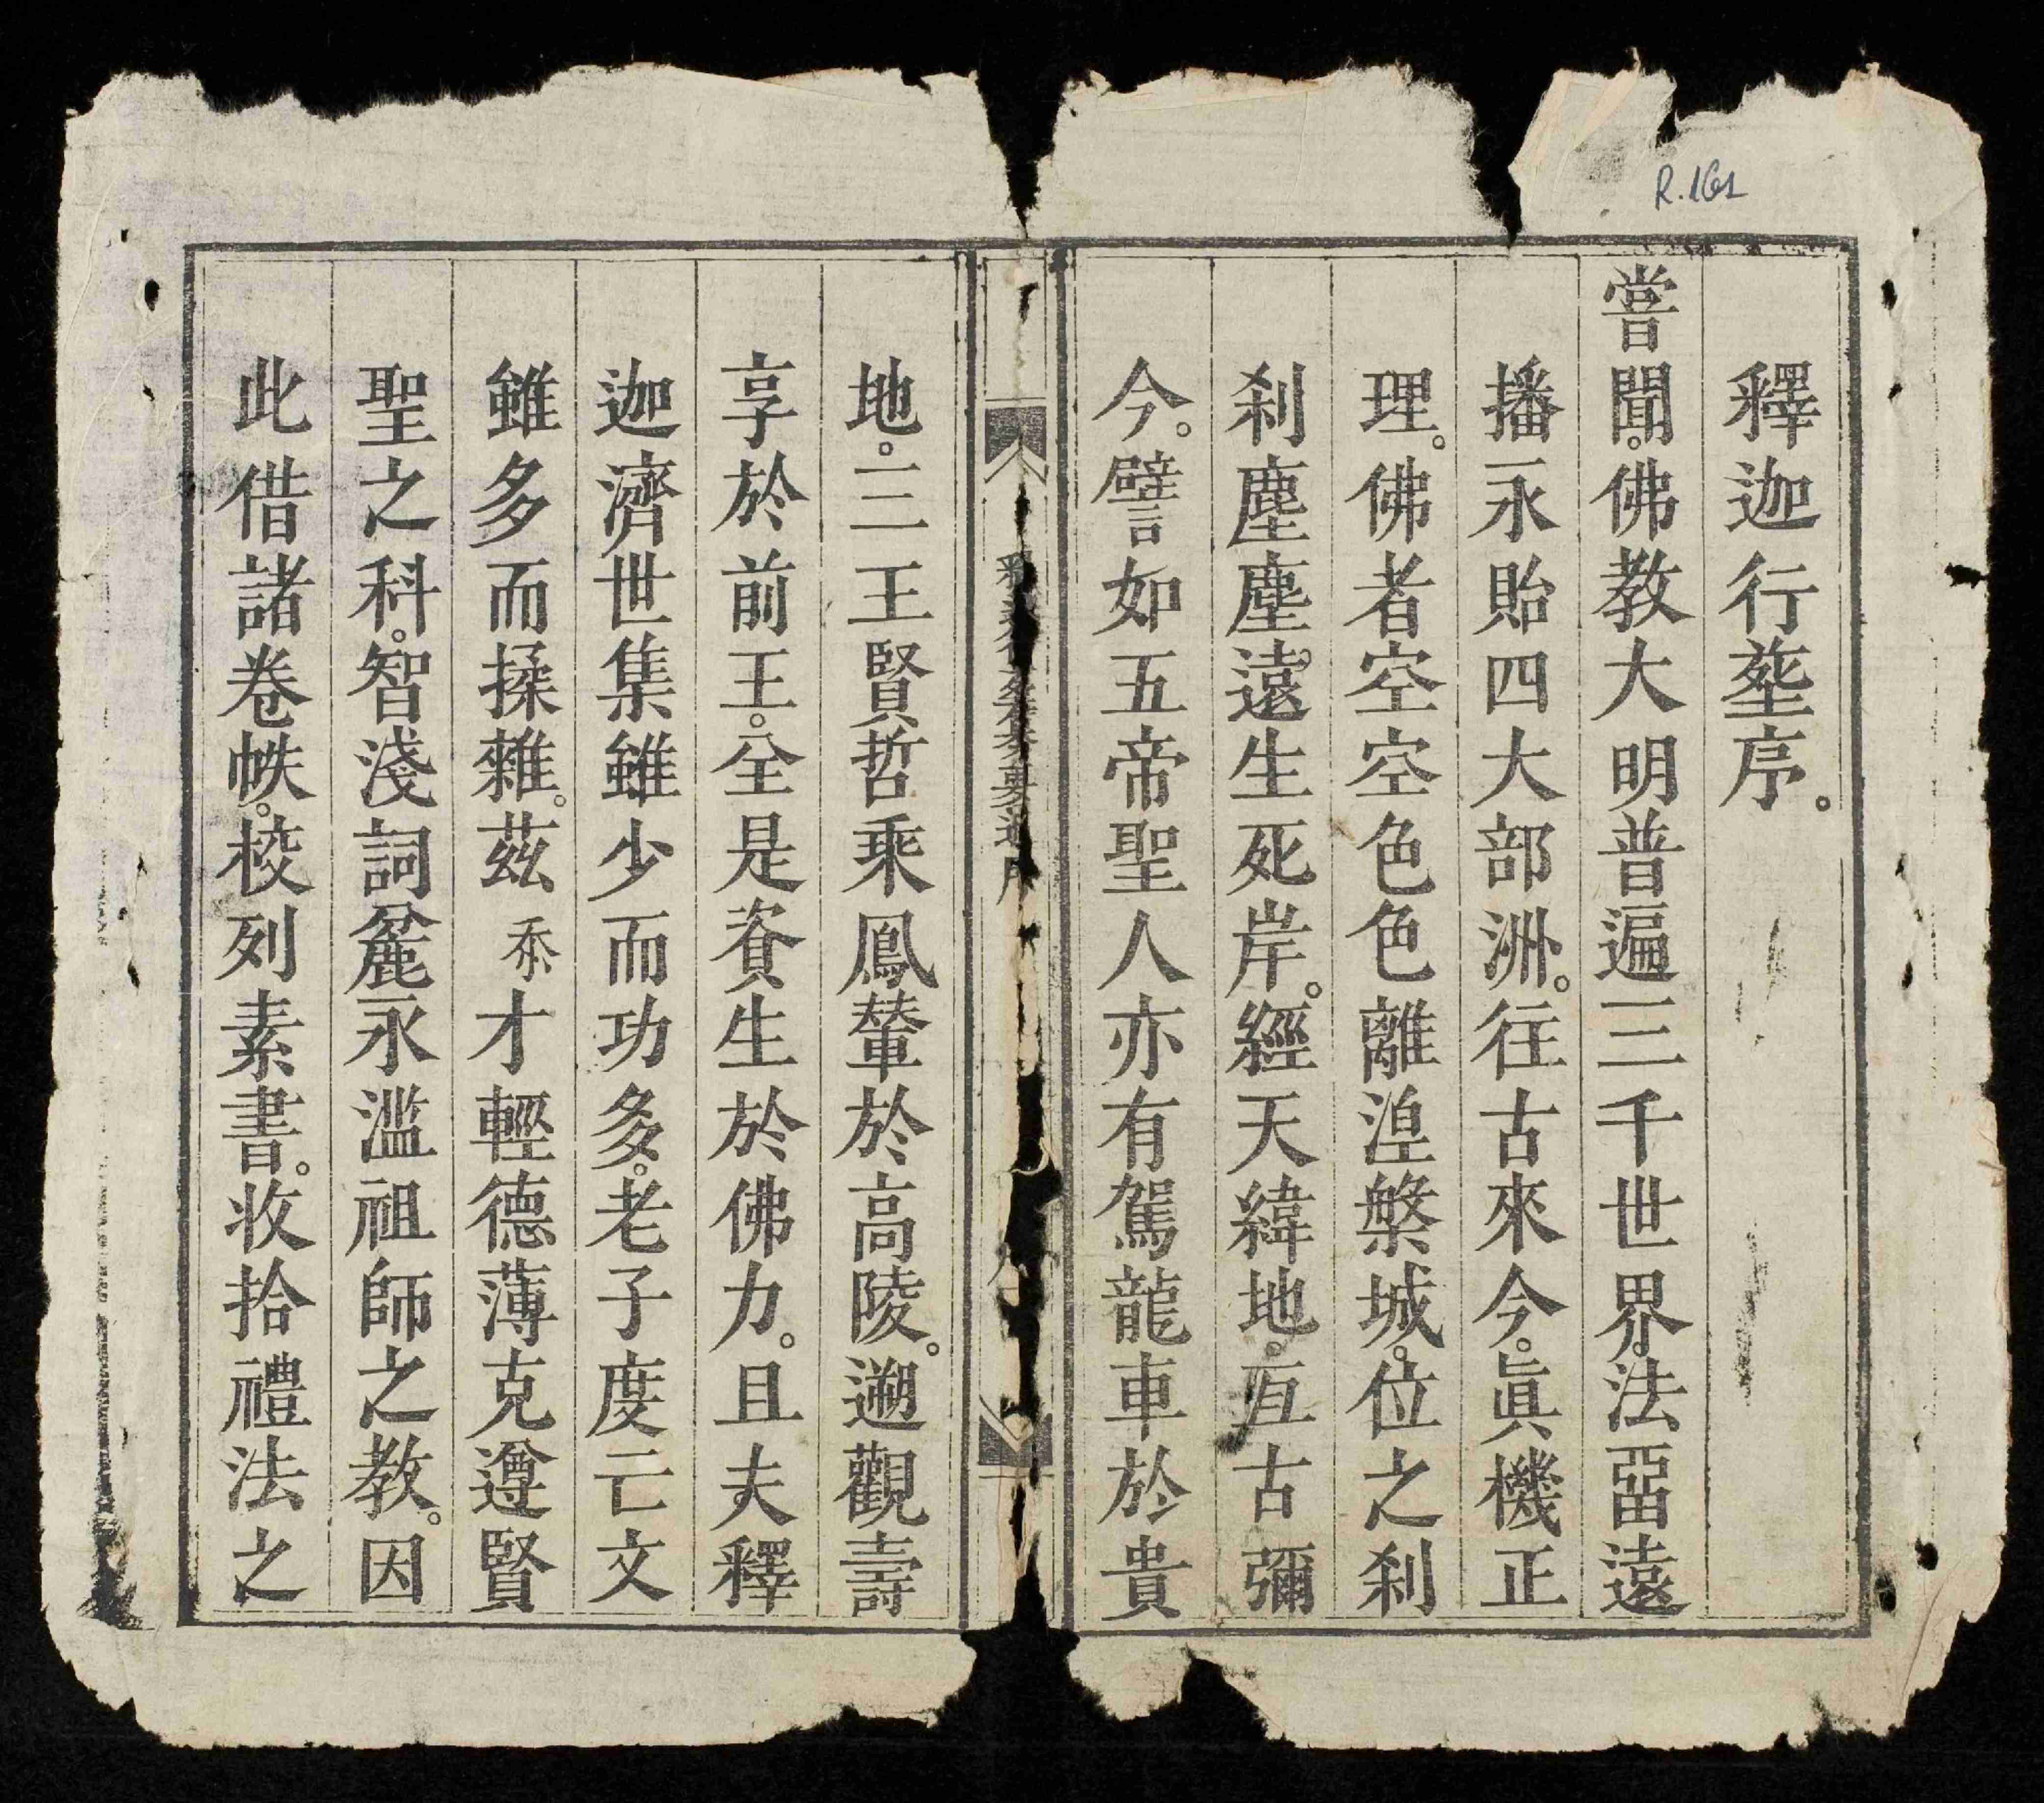 R.161
釋迦行塟序。
嘗聞。佛教大明普遍三千世界。法𠄻遠
播永貽四大部洲。往古來今。眞機正
理。佛者空空色色離湼槃城。位之剎
剎塵塵。遠生死岸。經天緯地。亙古彌
今。譬如五帝聖人亦有駕龍車於貴
地。三王賢哲乘鳳輦於高陵。遡觀壽
享於前王。全是資生於佛力。且夫釋
迦濟世集雖少而功多。老子度亡文
雖多而揉雜。茲忝才輕德薄克遵賢
聖之科。智淺詞麄永滥祖師之教。因
此借諸卷帙。校列素書。收拾禮法之